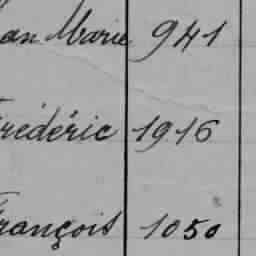 an Marie 941
rédéric 1916
rançois 1050